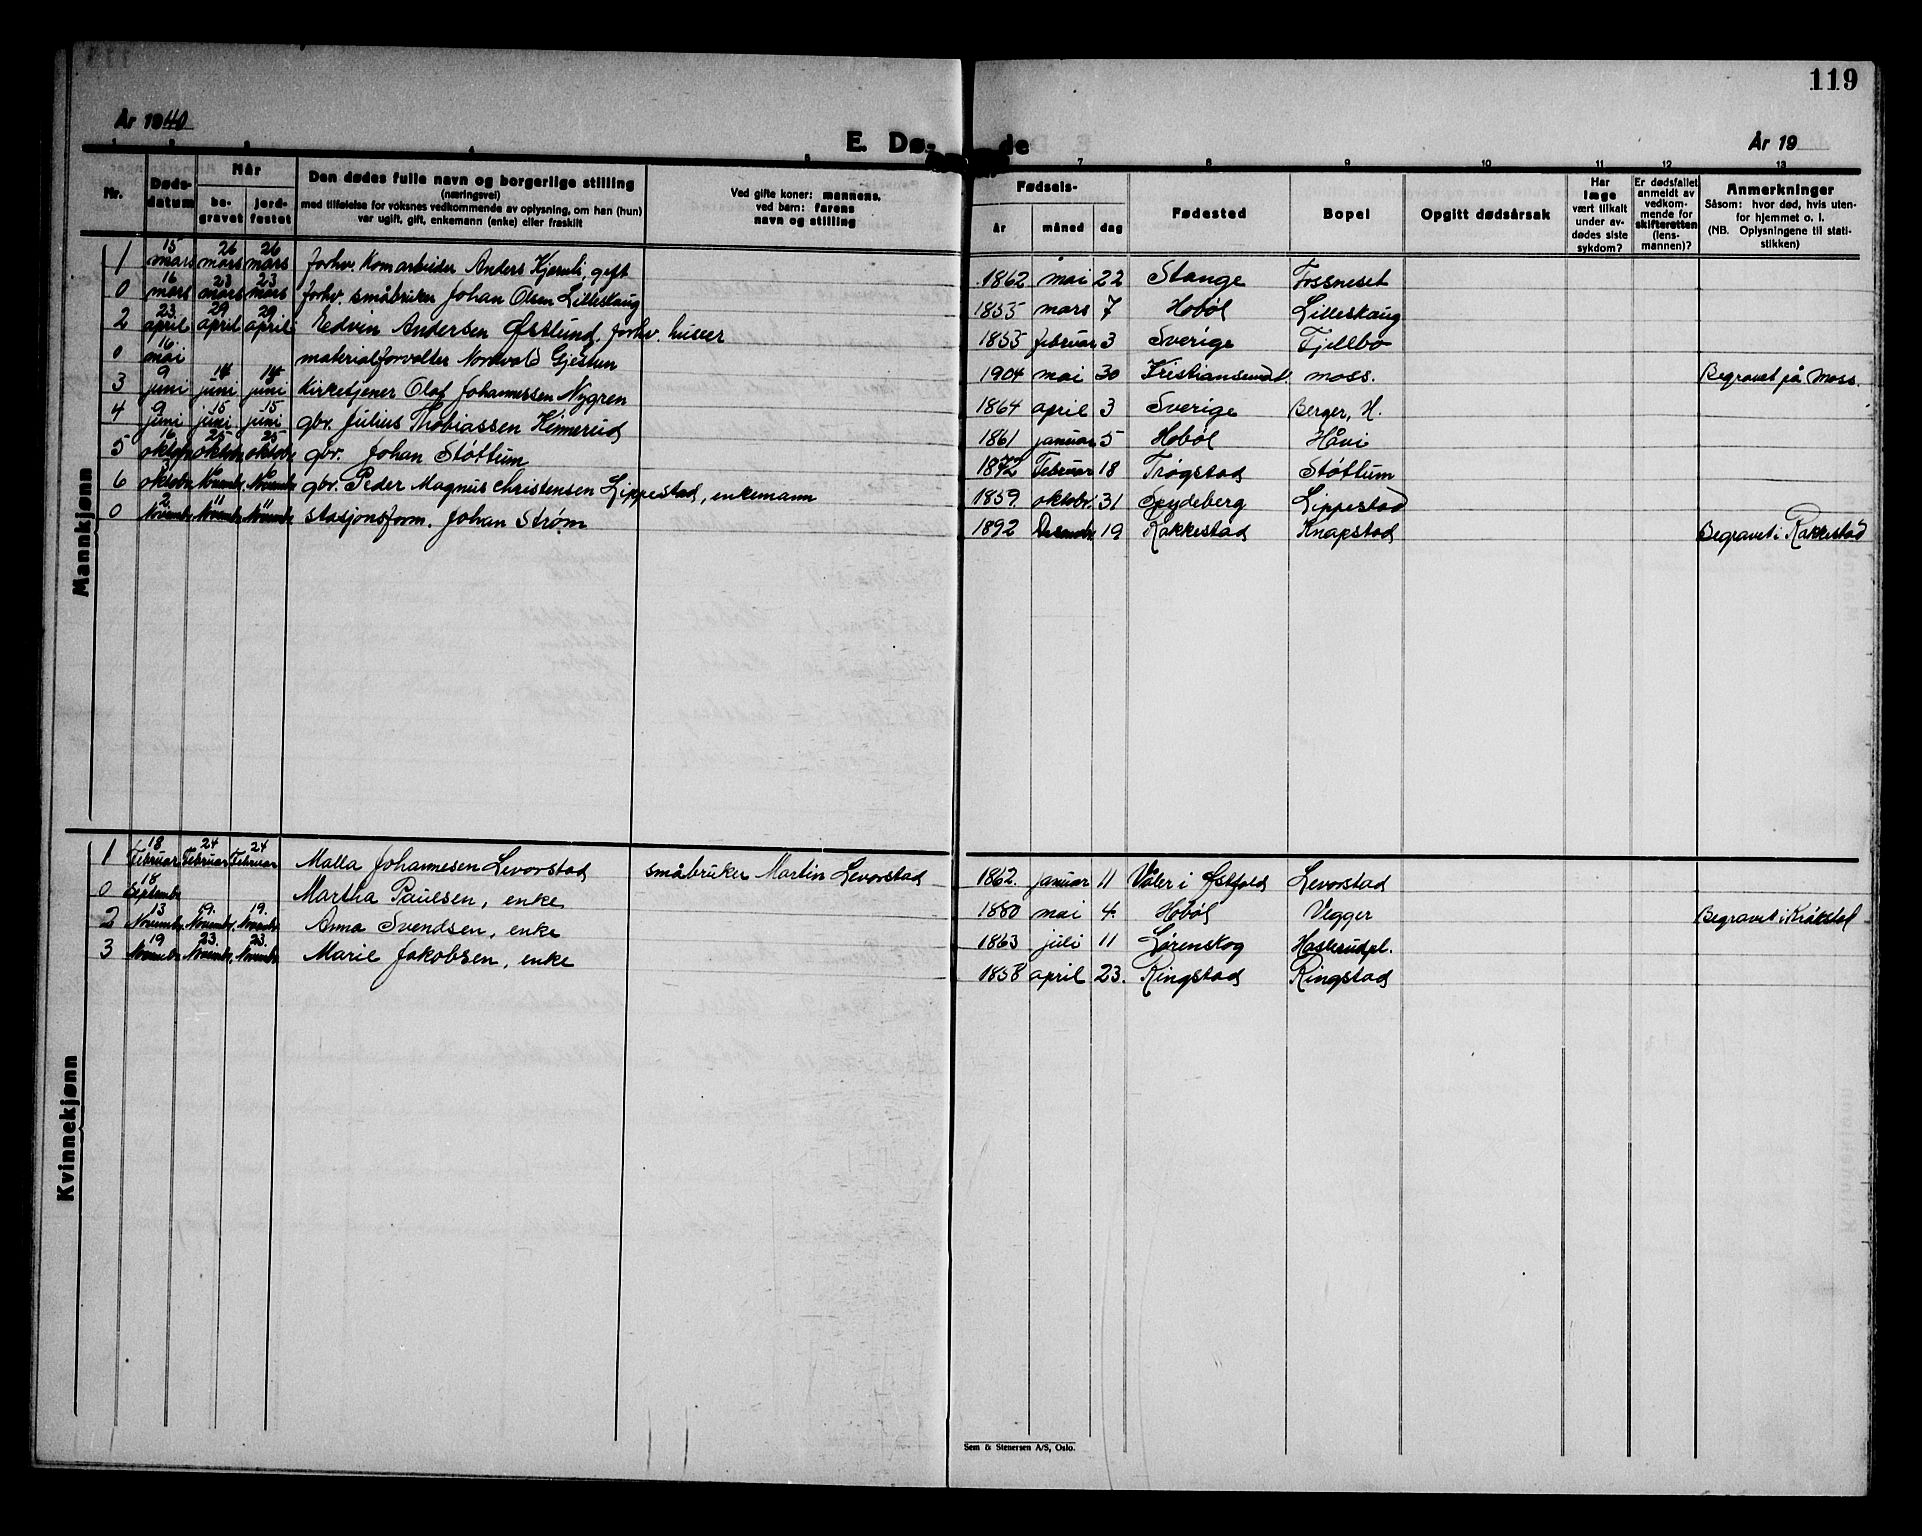 119
År 1940
E. Dø- de
År 19
1 2 3 4 5 7 8 9 10 11 12 13
Nr.
Døds-
datum
Når
be-
gravet
jord-
festet
Den dødes fulle navn og borgerlige stilling
(næringsvei)
med tilføielse for voksnes vedkommende av oplysning, om han (hun)
var ugift, gift, enkemann (enke) eller fraskilt
Ved gifte koner: mannens,
ved børn: farens
navn og stilling
Fødsels-
år måned dag
Fødested
Bopel
Opgitt dødsårsak
Har
læge
vært tilkalt
under av-
dødes siste
sykdom?
Er dødsfallet
anmeldt av
vedkom-
mende for
skifteretten
(lens-
mannen)?
Anmerkninger
Såsom: hvor død, hvis uten-
for hjemmet o. l.
(NB. Oplysningene til stati-
stikken)
Mannkjønn
1 15 mars 26 mars 26 mars forhv. Komarbeider Anders Kjernli, gift 1862 mai 22 Stange Fossneset
0 16 mars 23 mars 23 mars forhv. småbruker Johan Olsen Lilleskaug 1855 mars 7 Hobøl Lilleskaug
2 23. april 29 april 29 april Edvin Andersen Østlund, forhv. huseier 1855 februar 3 Sverige Fjellbo
0 16 mai materialforvalter Nordvald Gjesten 1904 mai 30 Kristiansund. moss. Begravet på Moss.
3 9 juni 14 juni 14 juni Kirketjener Olaf Johannessen Nygren 1864 april 3 Sverige Berger, H.
4 9 juni 15 juni 15 juni gbr. Julius Thobiassen Himerud 1861 januar 5 Hobøl Håvi
5 16 oktobr 25 oktobr 25 oktobr gbr. Johan Støttum 1872 Februar 18 Trøgstad Støttum
6 oktobr Novembr Novembr gbr. Peder Magnus Christensen Lippestad, enkemann 1859. oktobr. 31 Spydeberg Lippestad
0 2 Novembr 11 Novembr 11 Novembr stasjonsform. Johan Strøm 1892 Desembr 19 Rakkestad Knapstad Begravet i Rakkestad
Kvinnekjønn
1 18 Februar 24 Februar 24 Februar Malla Johannesen Levorstad småbruker Martin Levorstad 1862. januar 11 Våler i Østfold Levorstad
0 18 Septembr Martha Paulsen, enke 1880 mai 4 Hobøl Vegger Begravet i Kråkstad
2 13 Novembr 19. Novembr 19. Novembr Anna Svendsen, enke 1863 juli 11 Lørenskog Haslerudpl.
3 19 Novembr 23. Novembr 23. Novembr Marie Jakobsen, enke 1858 april 23. Ringstad Ringstad
Sem & Stenersen A/S, Oslo.